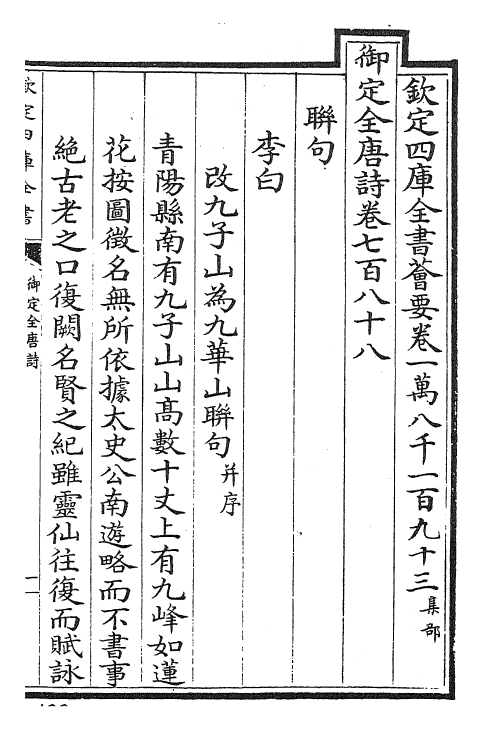 欽定四庫全書薈要卷一萬八千一百九十三集部
御定全唐詩卷七百八十八
聨句
李白
改九子山為九華山聨句并序
青陽縣南有九子山山髙數十丈上有九峰如蓮
花按圖徵名無所依據太史公南遊略而不書事
絶古老之口復闕名賢之紀雖靈仙往復而賦詠
欽定四庫全書
御定全唐詩
一